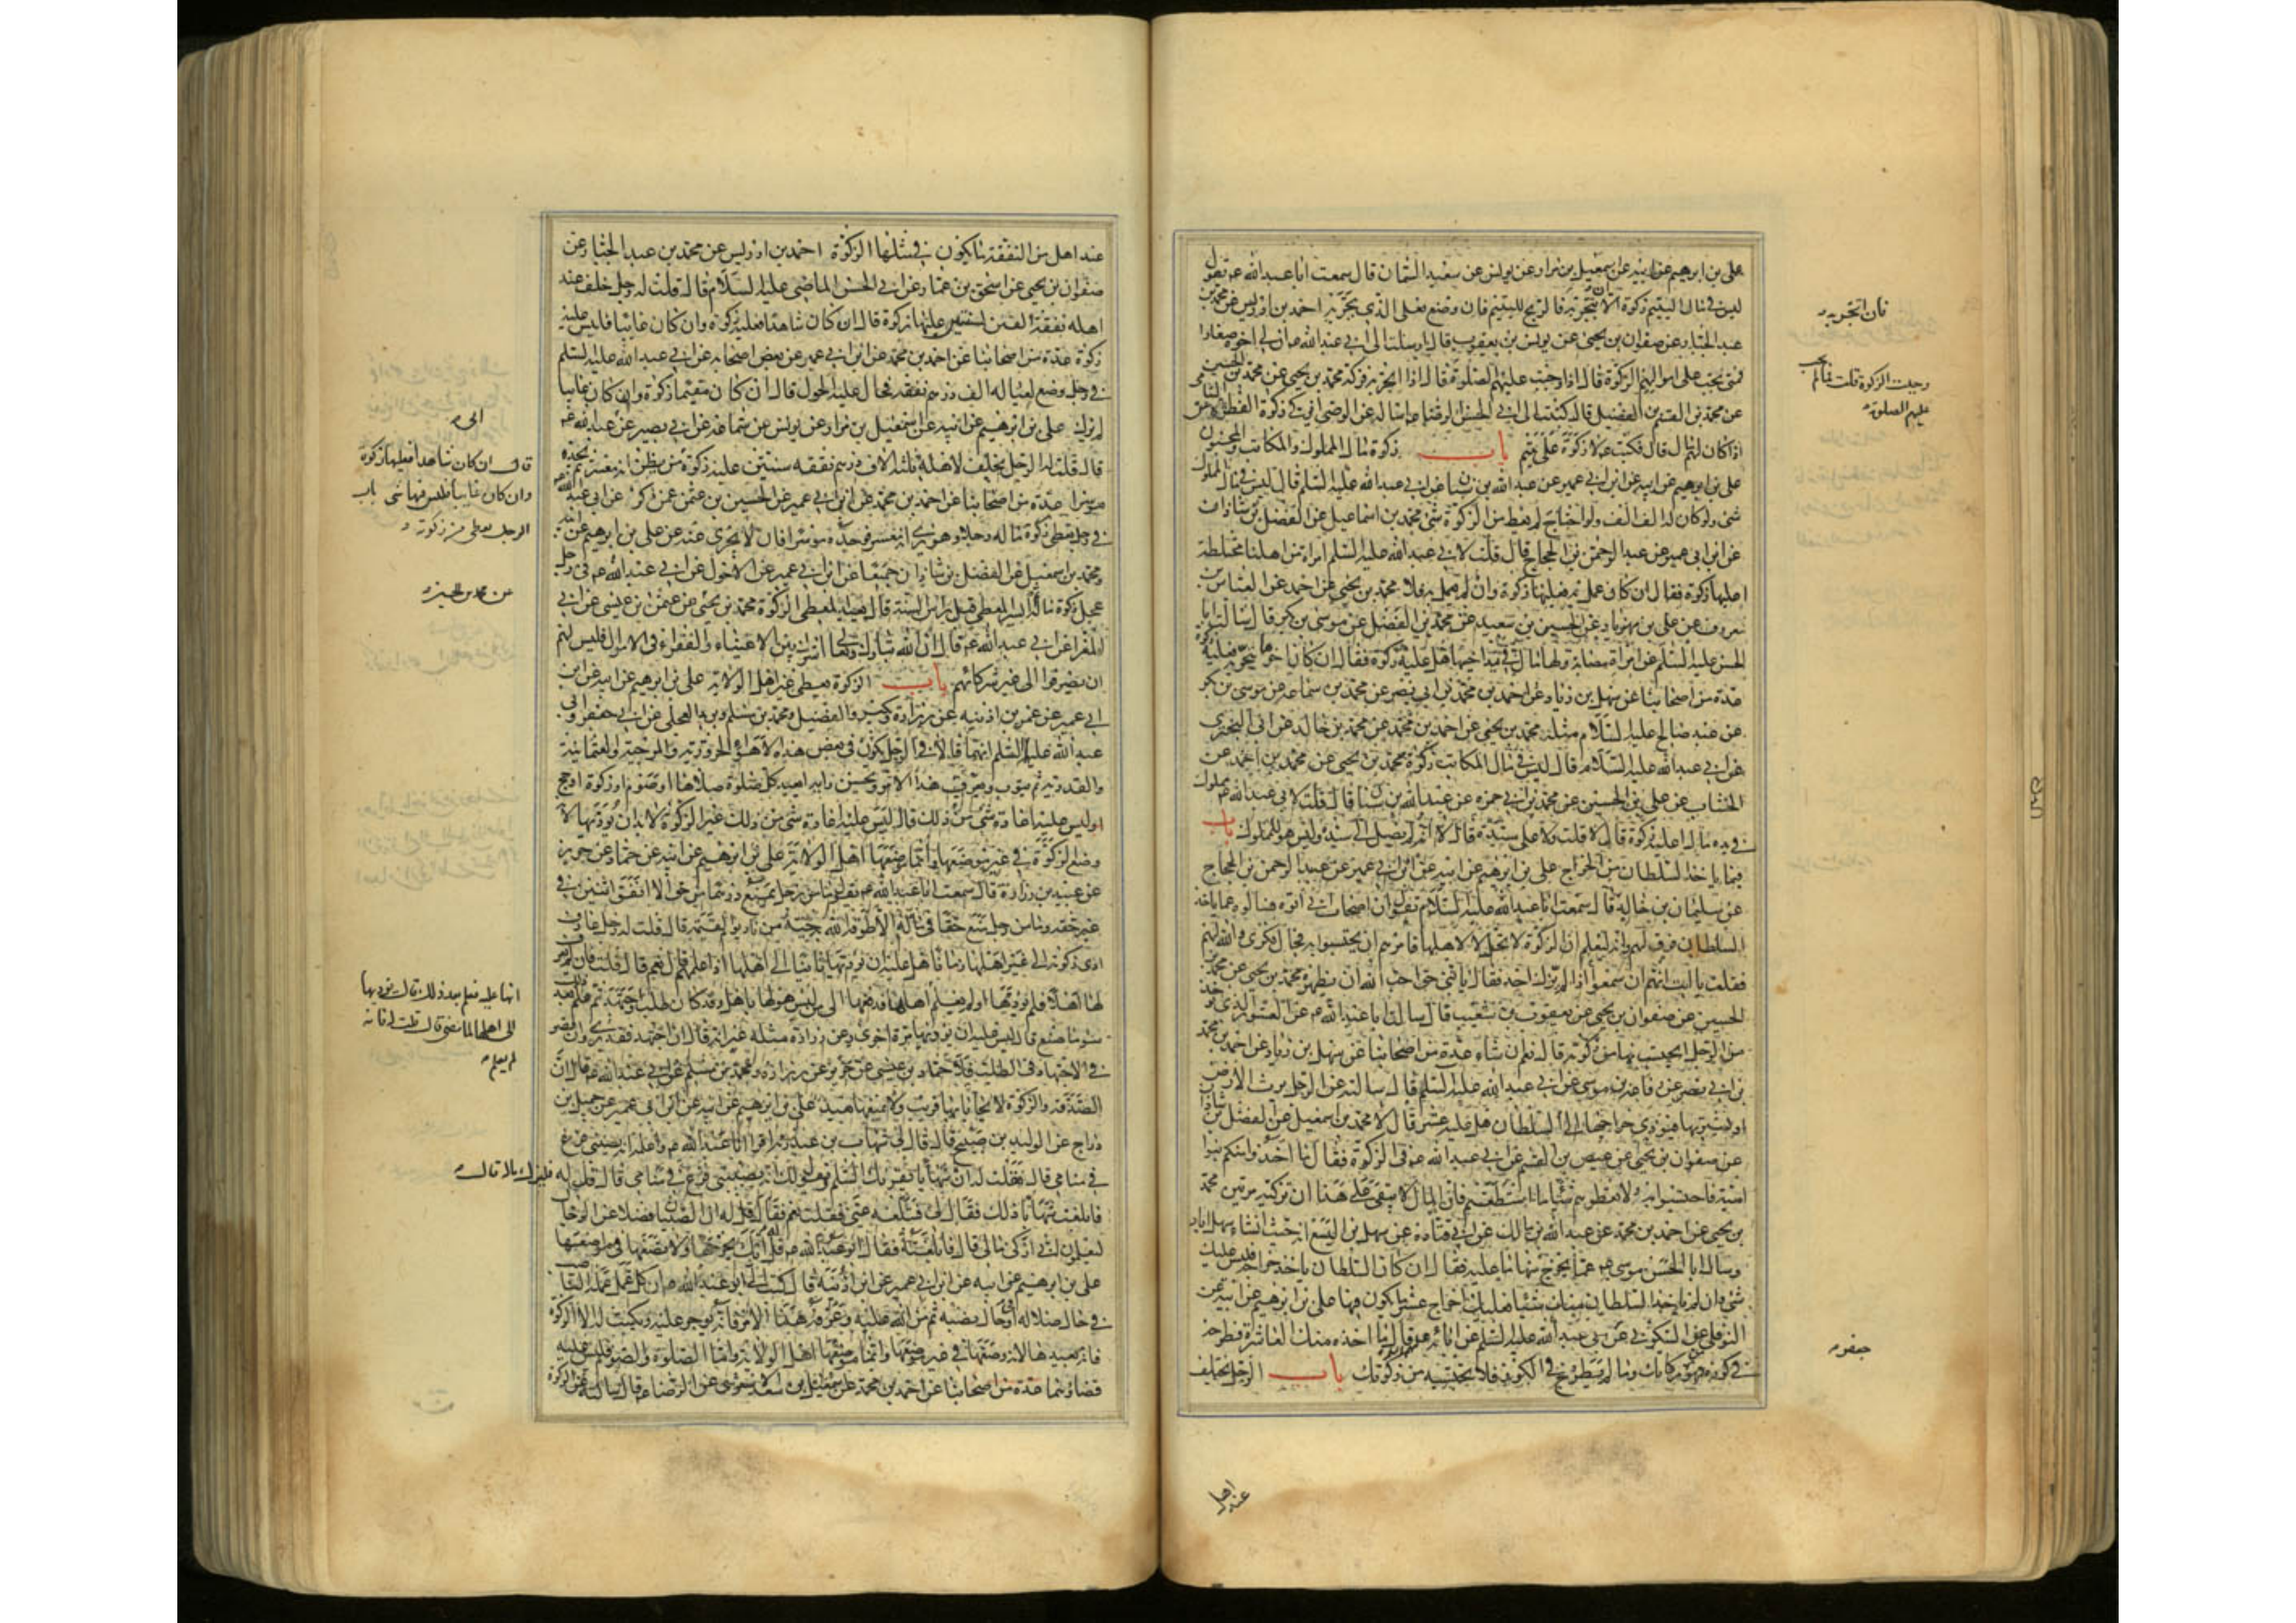 علي بن ابرهيم عن ابيه عن اسمعيل بن مرار عن يونس عن سعيد السمان قال سمعت ابا عبد الله عم يقول
ليس في مال اليتيم زكوة الا ان يتجر به فان اتجر به فالربح لليتيم فان وضع فعلى الذي يتجر به احمد بن ادريس عن محمد بن
عبد الجبار عن صفوان بن يحيى عن يونس بن يعقوب قال ارسلت الى ابي عبد الله عم ان لي اخوة صغارا
فمتى تجب على اموالهم الزكوة قال اذا وجبت عليهم الصلوة قال اذا اتجر به فزكه محمد بن يحيى عن محمد بن الحسين
عن محمد بن القسم بن الفضيل قال كتبت الى ابي الحسن الرضا عم اساله عن الوصي ايزكي زكوة الفطرة عن اليتامى
اذا كان لهم مال قال فكتب عم لا زكوة على يتيم باب زكوة مال المملوك والمكاتب والمجنون
علي بن ابرهيم عن ابيه عن ابن ابي عمير عن عبد الله بن سنان عن ابي عبد الله عليه السلم قال ليس في مال المملوك
شئ ولو كان له الف الف ولو احتاج لم يعط من الزكوة شئ محمد بن اسماعيل عن الفضل بن شاذان
عن ابن ابي عمير عن عبد الرحمن بن الحجاج قال قلت لابي عبد الله عليه السلم امراة من اهلنا مختلطة
اعليها زكوة فقال ان كان عمل به فعليها زكوة وان لم يعمل به فلا محمد بن يحيى عن احمد عن العباس بن
معروف عن علي بن مهزيار عن الحسين بن سعيد عن محمد بن الفضل عن موسى بن بكر قال سالت ابا
الحسن عليه السلم عن امراة مصابة ولها مال في يد اخيها هل عليه زكوة فقال ان كان اخوها يتجر به فعليه زكوة
عدة من اصحابنا عن سهل بن زياد عن احمد بن محمد بن ابي نصر عن محمد بن سماعة عن موسى بن بكر
عن عبد صالح عليه السلام مثله محمد بن يحيى عن احمد بن محمد عن محمد بن خالد عن ابي البختري
عن ابي عبد الله عليه السلام قال ليس في مال المكاتب زكوة محمد بن يحيى عن محمد بن احمد عن
الخشاب عن علي بن الحسين عن محمد بن ابي حمزة عن عبد الله بن سنان قال قلت لابي عبد الله عم مملوك
في يده مال اعليه زكوة قال لا قلت ولا على سيده قال لا انه لم يصل الى سيده وليس هو للمملوك باب
فيما ياخذ السلطان من الخراج علي بن ابرهيم عن ابيه عن ابن ابي عمير عن عبد الرحمن بن الحجاج
عن سليمان بن خالد قال سمعت ابا عبد الله عليه السلام يقول ان اصحاب ابي اتوه فسالوه عما ياخذ
السلطان فرق لهم وانه ليعلم ان الزكوة لا تحل الا لاهلها فامرهم ان يحتسبوا به فجال فكري والله لهم
فقلت يا ابت انهم ان سمعوا اذا لم يزك احد فقال يا بني حق احب الله ان يظهره محمد بن يحيى عن محمد بن
الحسين عن صفوان بن يحيى عن يعقوب بن شعيب قال سالت ابا عبد الله عم عن العشور التي تؤخذ
من الرجل ايحتسب بها من زكوته قال نعم ان شاء عدة من اصحابنا عن سهل بن زياد عن احمد بن محمد
بن ابي نصر عن رفاعة بن موسى عن ابي عبد الله عليه السلم قال سالته عن الرجل يرث الارض
او يشتريها فيؤدي خراجها الى السلطان هل عليه عشر قال لا محمد بن اسمعيل عن الفضل بن شاذان
عن صفوان بن يحيى عن عيص بن القسم عن ابي عبد الله عم في الزكوة فقال ما اخذ وامنكم بنوا
امية فاحتسبوا به ولا تعطوهم شيئا ما استطعتم فان المال لا يبقى على هذا ان تزكيه مرتين محمد
بن يحيى عن احمد بن محمد عن عبد الله بن مالك عن ابي قتادة عن سهل بن اليسع انه حيث انشا سهل اباد
وسال ابا الحسن موسى عم عما يخرج منها ما عليه فقال ان كان السلطان ياخذ خراجه فليس عليك
شئ وان لم ياخذ السلطان منك شيئا فعليك اخراج عشر ما يكون فيها علي بن ابرهيم عن ابيه عن
النوفلي عن السكوني عن ابي عبد الله عليه السلم عن ابائه عم قال ما اخذه منك العاشر فطرحه
في كوزه فهو من زكاتك وما لم يطرح في الكوز فلا تحتسبه من زكوتك باب الرجل يخلف
فان اتجر به
وجبت الزكوة قلت فما لم تجب
عليهم الصلوة
جعفر
عند اهل
عند اهله من النفقة ما يكون في مثلها الزكوة احمد بن ادريس عن محمد بن عبد الجبار عن
صفوان بن يحيى عن اسحق بن عمار عن ابي الحسن الماضي عليه السلام قال قلت له رجل خلف عند
اهله نفقة الفين لسنتين عليها زكوة قال ان كان شاهدا فعليه زكوة وان كان غائبا فليس عليه
زكوة عدة من اصحابنا عن احمد بن محمد عن ابن ابي عمير عن بعض اصحابه عن ابي عبد الله عليه السلم
في رجل وضع لعياله الف درهم نفقة فحال عليه الحول قال ان كان مقيما زكوة وان كان غايبا
لم يزك علي بن ابرهيم عن ابيه عن اسمعيل بن مرار عن يونس عن سماعة عن ابي بصير عن عبد الله عم
قال قلت له الرجل يخلف لاهله ثلثة الاف درهم نفقة سنتين عليه زكوة
موسرا عدة من اصحابنا عن احمد بن محمد عن ابن ابي عمير عن الحسين بن عثمن عمن ذكره عن ابي عبد الله
في رجل يعطي زكوة ماله رجلا وهو يرى انه معسر فوجده موسرا قال لا يجزي عنه علي بن ابرهيم عن ابيه
ومحمد بن اسمعيل عن الفضل بن شاذان جميعا عن ابن ابي عمير عن الاحول عن ابي عبد الله عم في رجل
عجل زكوة ماله ثم ايسر المعطى قبل راس السنة قال يعيد المعطي الزكوة محمد بن يحيى عن عثمن بن عيسى عن ابي
المغرا عن ابي عبد الله عم قال ان الله تبارك وتعالى اشرك بين الاغنياء والفقراء في الاموال فليس لهم
ان يصرفوا الى غير شركائهم باب الزكوة يعطى غير اهل الولاية علي بن ابرهيم عن ابيه عن ابن
ابي عمير عن عمر بن اذينه عن زرارة وبكير والفضيل ومحمد بن مسلم وبريد العجلي عن ابي جعفر وابي
عبد الله عليهما السلم انهما قالا في الرجل يكون في بعض هذه الاهواء الحرورية والمرجئة والعثمانية
والقدرية ثم يتوب ويعرف هذا الامر ويحسن رايه ايعيد كل صلوة صلاها او صوم او زكوة او حج
او ليس عليه اعادة شئ من ذلك قال ليس عليه اعادة شئ من ذلك غير الزكوة لا بد ان يؤديها لانه
وضع الزكوة في غير موضعها وانما موضعها اهل الولاية علي بن ابرهيم عن ابيه عن حماد عن حريز
عن عبيد بن زرارة قال سمعت ابا عبد الله عم يقول ما من رجل يمنع درهما من حق الا انفق اثنين في
غير حقه وما من رجل يمنع حقا في ماله الا طوقه الله به حية من نار يوم القيمة قال قلت له رجل عارف
ادى زكوته الى غير اهلها زمانا هل عليه ان يؤديها ثانيا الى اهلها اذا علمهم قال نعم قال قلت فان لم يعرف
لها اهلا فلم يؤدها او لم يعلم انها عليه
بئس ما صنع قال ليس عليه ان يؤديها مرة اخرى وعن زرارة مثله غير انه قال ان اجتهد فقد برئ وان قصر
في الاجتهاد في الطلب فلا حماد بن عيسى عن حريز عن زرارة ومحمد بن مسلم عن ابي عبد الله عم قال ان
الصدقة والزكوة لا يحابا بها قريب ولا يمنعها بعيد علي بن ابرهيم عن ابيه عن ابن ابي عمير عن جميل بن
دراج عن الوليد بن صبيح قال قال لي شهاب بن عبد ربه اقرا ابا عبد الله عم واعلمه انه يصيبني فزع
في منامي قال فقلت له ان شهابا يقرئك السلم ويقول لك انه يصيبني فزع في منامي قال قل له فليزك ماله قال
فابلغت شهابا ذلك فقال لي فتبلغه عني فقلت نعم فقال قل له ان الصبيان فضلا عن الرجال
ليعلمون اني ازكي مالي قال فابلغته فقال ابو عبد الله عم قل له انك تخرجها ولا تضعها في مواضعها
علي بن ابرهيم عن ابيه عن ابن ابي عمير عن ابن اذينه قال كتب الي ابو عبد الله عم ان كل عمل عمله الناصب
في حال ضلاله او حال نصبه ثم من الله عليه وعرفه هذا الامر فانه يوجر عليه ويكتب له الا الزكوة
فانه يعيدها لانه وضعها في غير موضعها وانما موضعها اهل الولاية واما الصلوة والصوم فليس عليه
قضاؤهما عدة من اصحابنا عن احمد بن محمد عن اسمعيل بن سعد الاشعري عن الرضا عم قال سالته عن الزكوة
الى
قال ان كان شاهدا فعليها زكوة
وان كان غايبا فليس فيها شئ باب
الرجل يعطى من زكوته
عن محمد بن الحسين
انها عليه فعلم بعد ذلك قال يؤديها
الى اهلها لما مضى قال قلت له فانه
لم يعلم